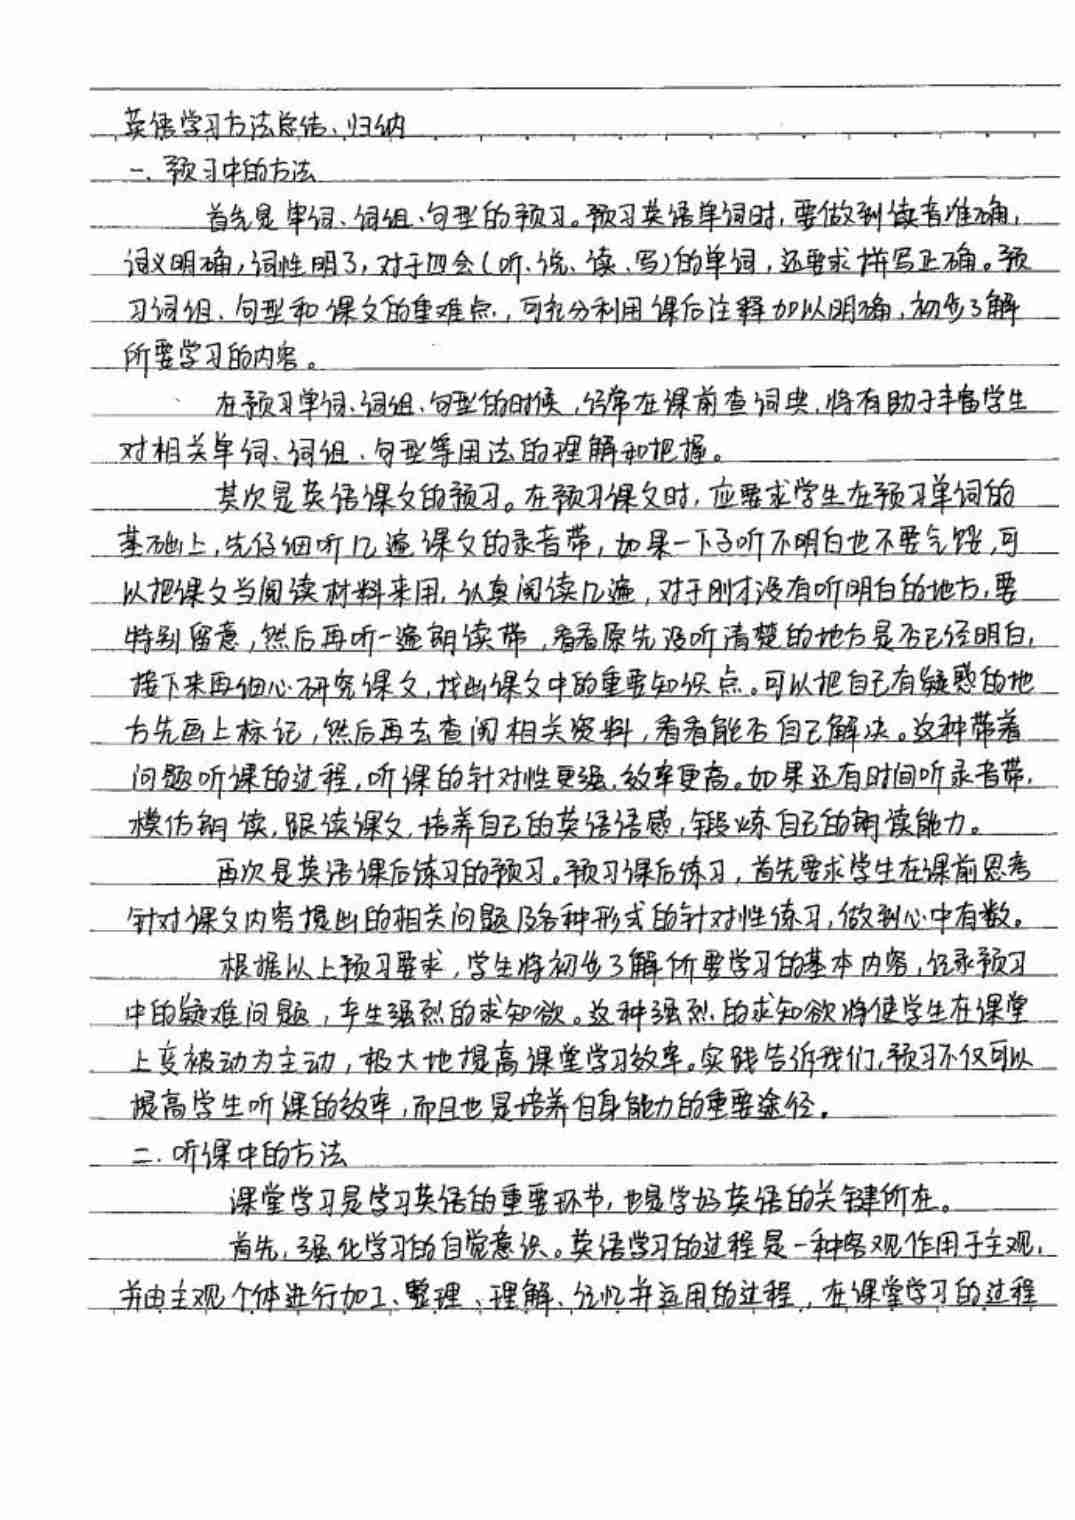 英语学习方法总结、归纳
一、预习中的方法
首先是单词、词组、句型的预习。预习英语单词时,要做到读音准确,
词义明确,词性明了,对于四会(听、说、读、写)的单词,还要求拼写正确。预
习词组、句型和课文的重难点,可充分利用课后注释加以明确,初步了解
所要学习的内容。
在预习单词、词组、句型的时候,经常在课前查词典,将有助于丰富学生
对相关单词、词组、句型等用法的理解和把握。
其次是英语课文的预习。在预习课文时,应要求学生在预习单词的
基础上,先仔细听几遍课文的录音带,如果一下子听不明白也不要气馁,可
以把课文当阅读材料来用,认真阅读几遍,对于刚才没有听明白的地方,要
特别留意,然后再听一遍朗读带,看看原先没听清楚的地方是否已经明白,
接下来再细心研究课文,找出课文中的重要知识点。可以把自己有疑惑的地
方先画上标记,然后再去查阅相关资料,看看能否自己解决。这种带着
问题听课的过程,听课的针对性更强,效率更高。如果还有时间听录音带,
模仿朗读,跟读课文,培养自己的英语语感,锻炼自己的朗读能力。
再次是英语课后练习的预习。预习课后练习,首先要求学生在课前思考
针对课文内容提出的相关问题及各种形式的针对性练习,做到心中有数。
根据以上预习要求,学生将初步了解所要学习的基本内容,记录预习
中的疑难问题,产生强烈的求知欲。这种强烈的求知欲将使学生在课堂
上变被动为主动,极大地提高课堂学习效率。实践告诉我们,预习不仅可以
提高学生听课的效率,而且也是培养自身能力的重要途径。
二.听课中的方法
课堂学习是学习英语的重要环节,也是学好英语的关键所在。
首先,强化学习的自觉意识。英语学习的过程是一种客观作用于主观,
并由主观个体进行加工、整理、理解、记忆并运用的过程,在课堂学习的过程